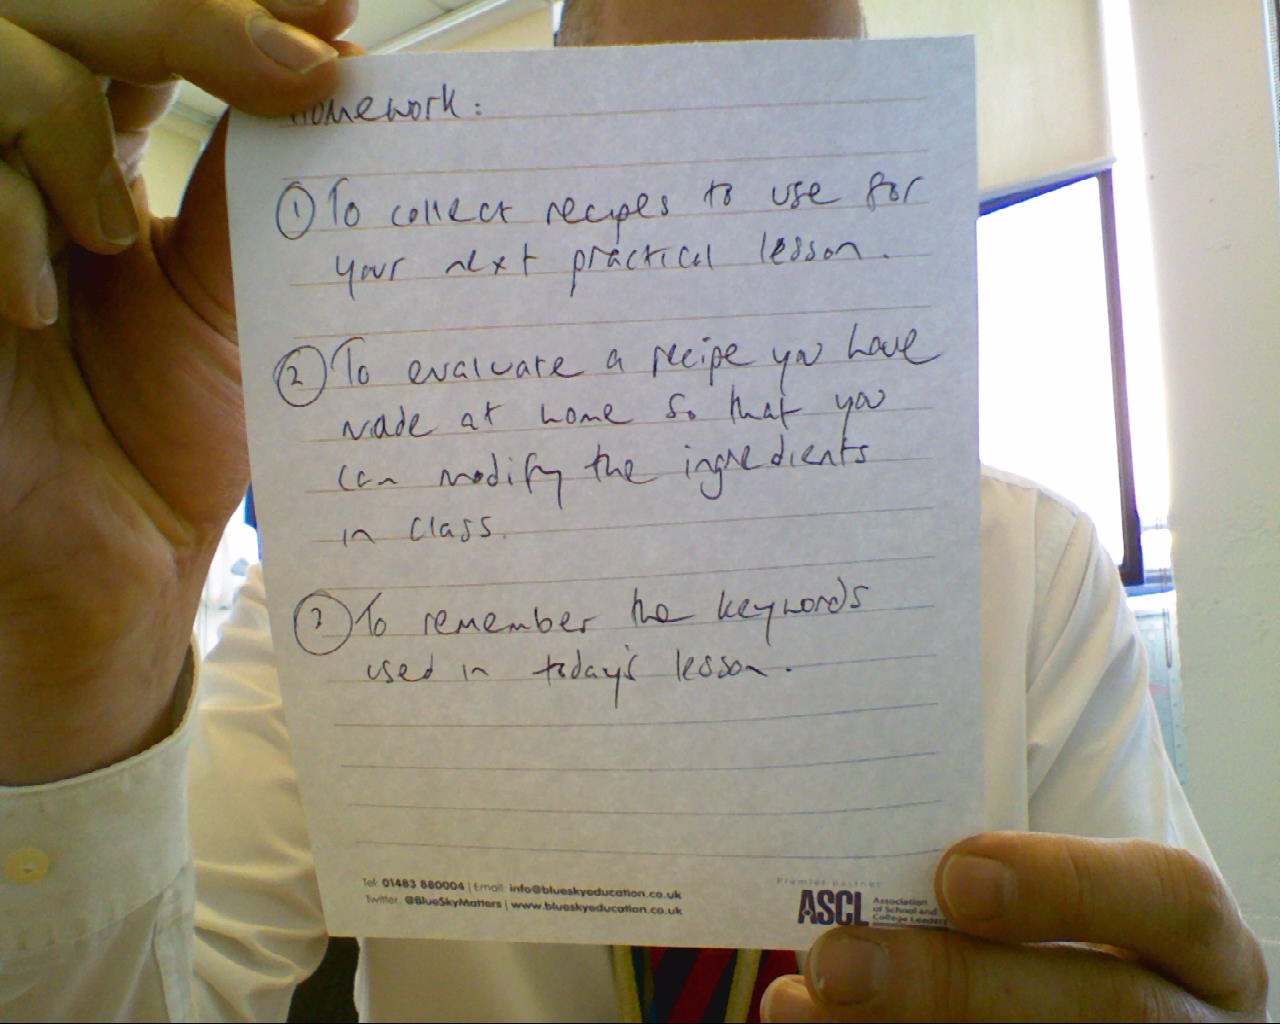 Homework:
① To collect recipes to use for
your next practical lesson.
② To evaluate a recipe you have
made at home so that you
can modify the ingredients
in class.
③ To remember the keywords
used in today's lesson.
Tel: 01483 880004 | Email: info@blueskyeducation.co.uk
Twitter: @BlueSkyMatters | www.blueskyeducation.co.uk
Premier partner
ASCL Association
of School and
College Leaders